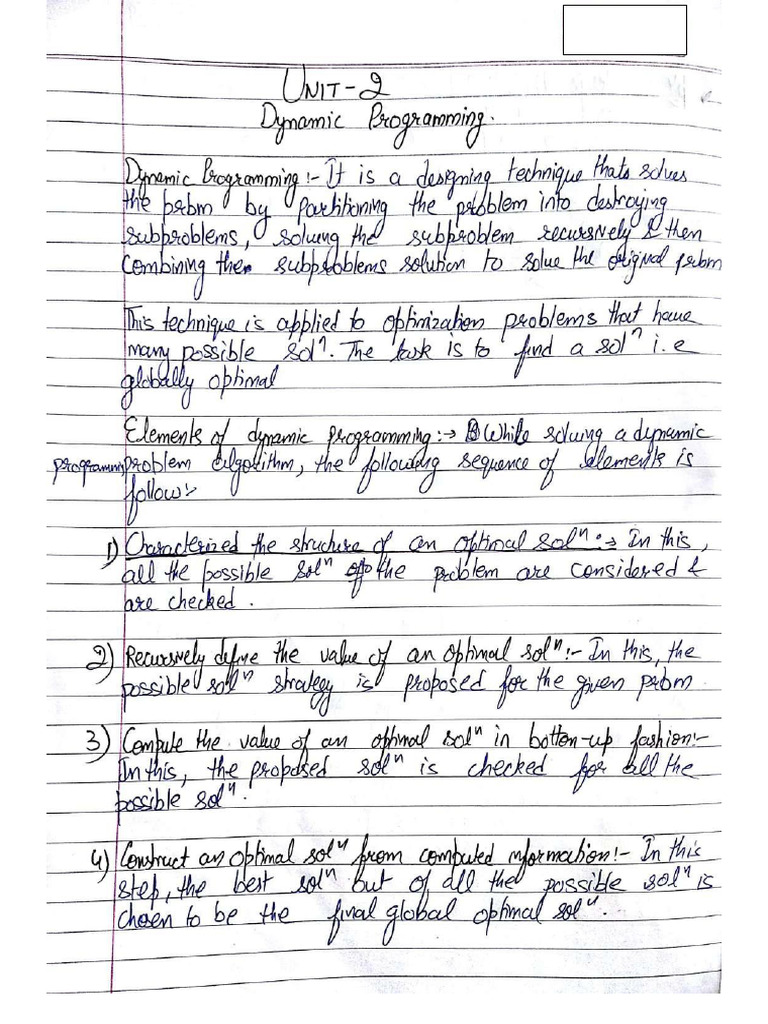 UNIT-2
Dynamic Programming.
Dynamic Programming:- It is a designing technique thats solves
the prbm by partitioning the problem into destroying
subproblems, solving the subproblem recursively & then
combining the subproblems solution to solve the original prbm
This technique is applied to optimization problems that have
many possible solⁿ. The task is to find a solⁿ i.e
globally optimal
Elements of dynamic programming:→ While solving a dynamic
programming problem algorithm, the following sequence of elements is
follow:-
1) Characterized the structure of an optimal solⁿ:→ In this,
all the possible solⁿ of the problem are considered &
are checked.
2) Recursively define the value of an optimal solⁿ:- In this, the
possible solⁿ strategy is proposed for the given prbm
3) Compute the value of an optimal solⁿ in bottom-up fashion:-
In this, the proposed solⁿ is checked for all the
possible solⁿ.
4) Construct an optimal solⁿ from computed information:- In this
step, the best solⁿ out of all the possible solⁿ is
chosen to be the final global optimal solⁿ.